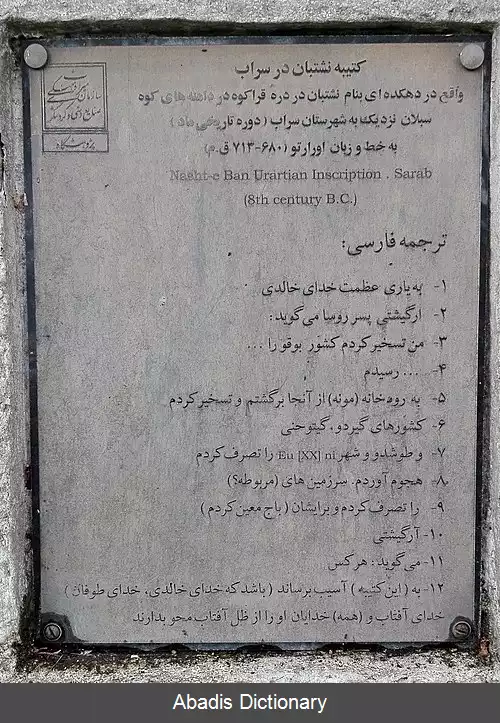 سازمان میراث فرهنگی
صنایع دستی و گردشگری
پژوهشگاه
کتیبه نشتبان در سراب
واقع در دهکده ای بنام نشتبان در درهٔ قراکوه در دامنه های کوه
سبلان نزدیک به شهرستان سراب (دوره تاریخی ماد)
به خط و زبان اورارتو (۶۸۰-۷۱۳ ق.م)
Nasht-e Ban Urartian Inscription . Sarab
(8th century B.C.)
ترجمه فارسی:
۱- به یاری عظمت خدای خالدی
۲- ارگیشتی پسر روسا می‌گوید:
۳- من تسخیر کردم کشور بوقو را ...
۴- ... رسیدم
۵- به رودخانه (مونه) از آنجا برگشتم و تسخیر کردم
۶- کشورهای گیردو، گیتوحنی
۷- و طوشدو و شهر Eu [XX] ni را تصرف کردم
۸- هجوم آوردم. سرزمین های (مربوطه؟)
۹- را تصرف کردم و برایشان (باج معین کردم)
۱۰- آرگیشتی
۱۱- می‌گوید: هر کس
۱۲- به (این کتیبه) آسیب برساند (باشد که خدای خالدی، خدای طوفان)
خدای آفتاب و (همه) خدایان او را از ظل آفتاب محو بدارند
Abadis Dictionary